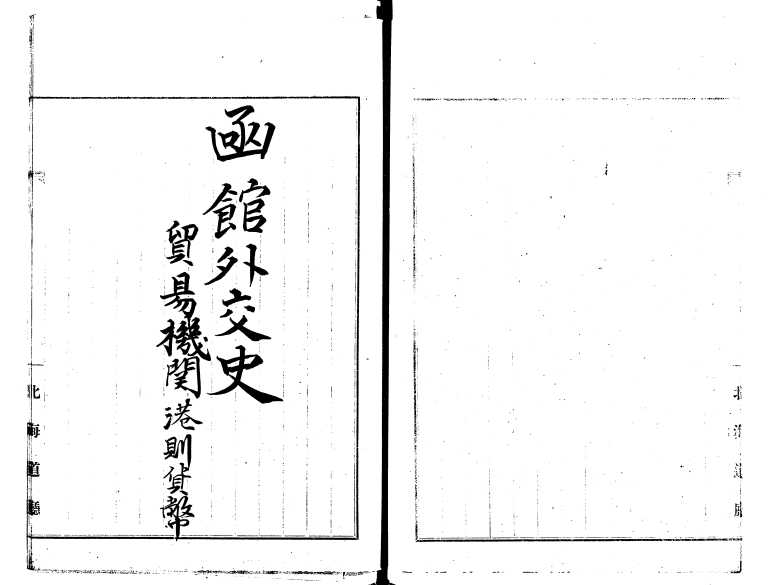 北海道廳
函館外交史
貿易機関港則貨幣
北海道廳